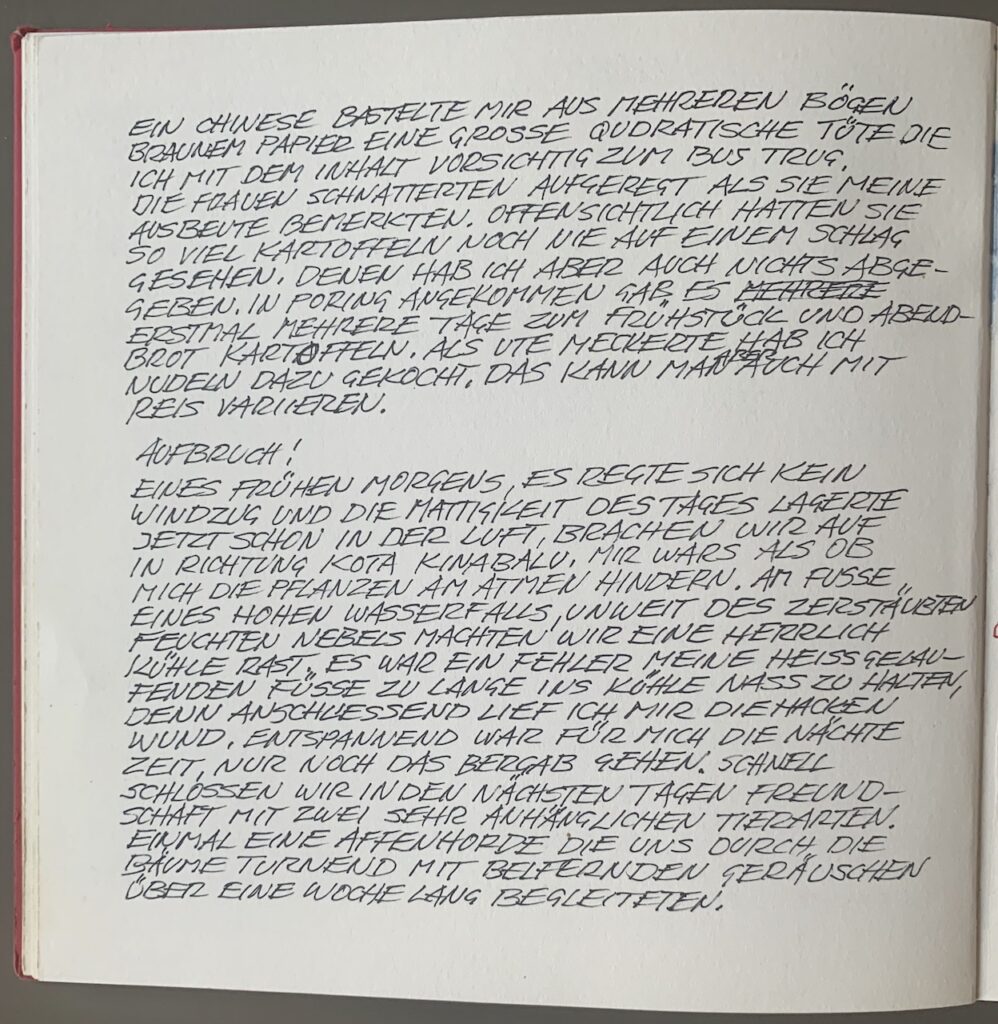 EIN CHINESE BASTELTE MIR AUS MEHREREN BÖGEN
BRAUNEM PAPIER EINE GROSSE QUDRATISCHE TÜTE DIE
ICH MIT DEM INHALT VORSICHTIG ZUM BUS TRUG.
DIE FRAUEN SCHNATTERTEN AUFGEREGT ALS SIE MEINE
AUSBEUTE BEMERKTEN. OFFENSICHTLICH HATTEN SIE
SO VIEL KARTOFFELN NOCH NIE AUF EINEM SCHLAG
GESEHEN. DENEN HAB ICH ABER AUCH NICHTS ABGE-
GEBEN. IN PORING ANGEKOMMEN GAB ES MEHRERE
ERSTMAL MEHRERE TAGE ZUM FRÜHSTÜCK UND ABEND-
BROT KARTOFFELN. ALS UTE MECKERTE HAB ICH
NUDELN DAZU GEKOCHT. DAS KANN MAN ABER AUCH MIT
REIS VARIIEREN.
AUFBRUCH!
EINES FRÜHEN MORGENS, ES REGTE SICH KEIN
WINDZUG UND DIE MATTIGKEIT DES TAGES LAGERTE
JETZT SCHON IN DER LUFT, BRACHEN WIR AUF
IN RICHTUNG KOTA KINABALU. MIR WARS ALS OB
MICH DIE PFLANZEN AM ATMEN HINDERN. AM FUSSE
EINES HOHEN WASSERFALLS, UNWEIT DES ZERSTÄUBTEN
FEUCHTEN NEBELS MACHTEN WIR EINE HERRLICH
KÜHLE RAST. ES WAR EIN FEHLER MEINE HEISSGELAU-
FENDEN FÜSSE ZU LANGE INS KÜHLE NASS ZU HALTEN,
DENN ANSCHLIESSEND LIEF ICH MIR DIE HACKEN
WUND. ENTSPANNEND WAR FÜR MICH DIE NÄCHTE
ZEIT, NUR NOCH DAS BERGAB GEHEN. SCHNELL
SCHLOSSEN WIR IN DEN NÄCHSTEN TAGEN FREUND-
SCHAFT MIT ZWEI SEHR ANHÄNGLICHEN TIERARTEN.
EINMAL EINE AFFENHORDE DIE UNS DURCH DIE
BÄUME TURNEND MIT BELFERNDEN GERÄUSCHEN
ÜBER EINE WOCHE LANG BEGLEITETEN.